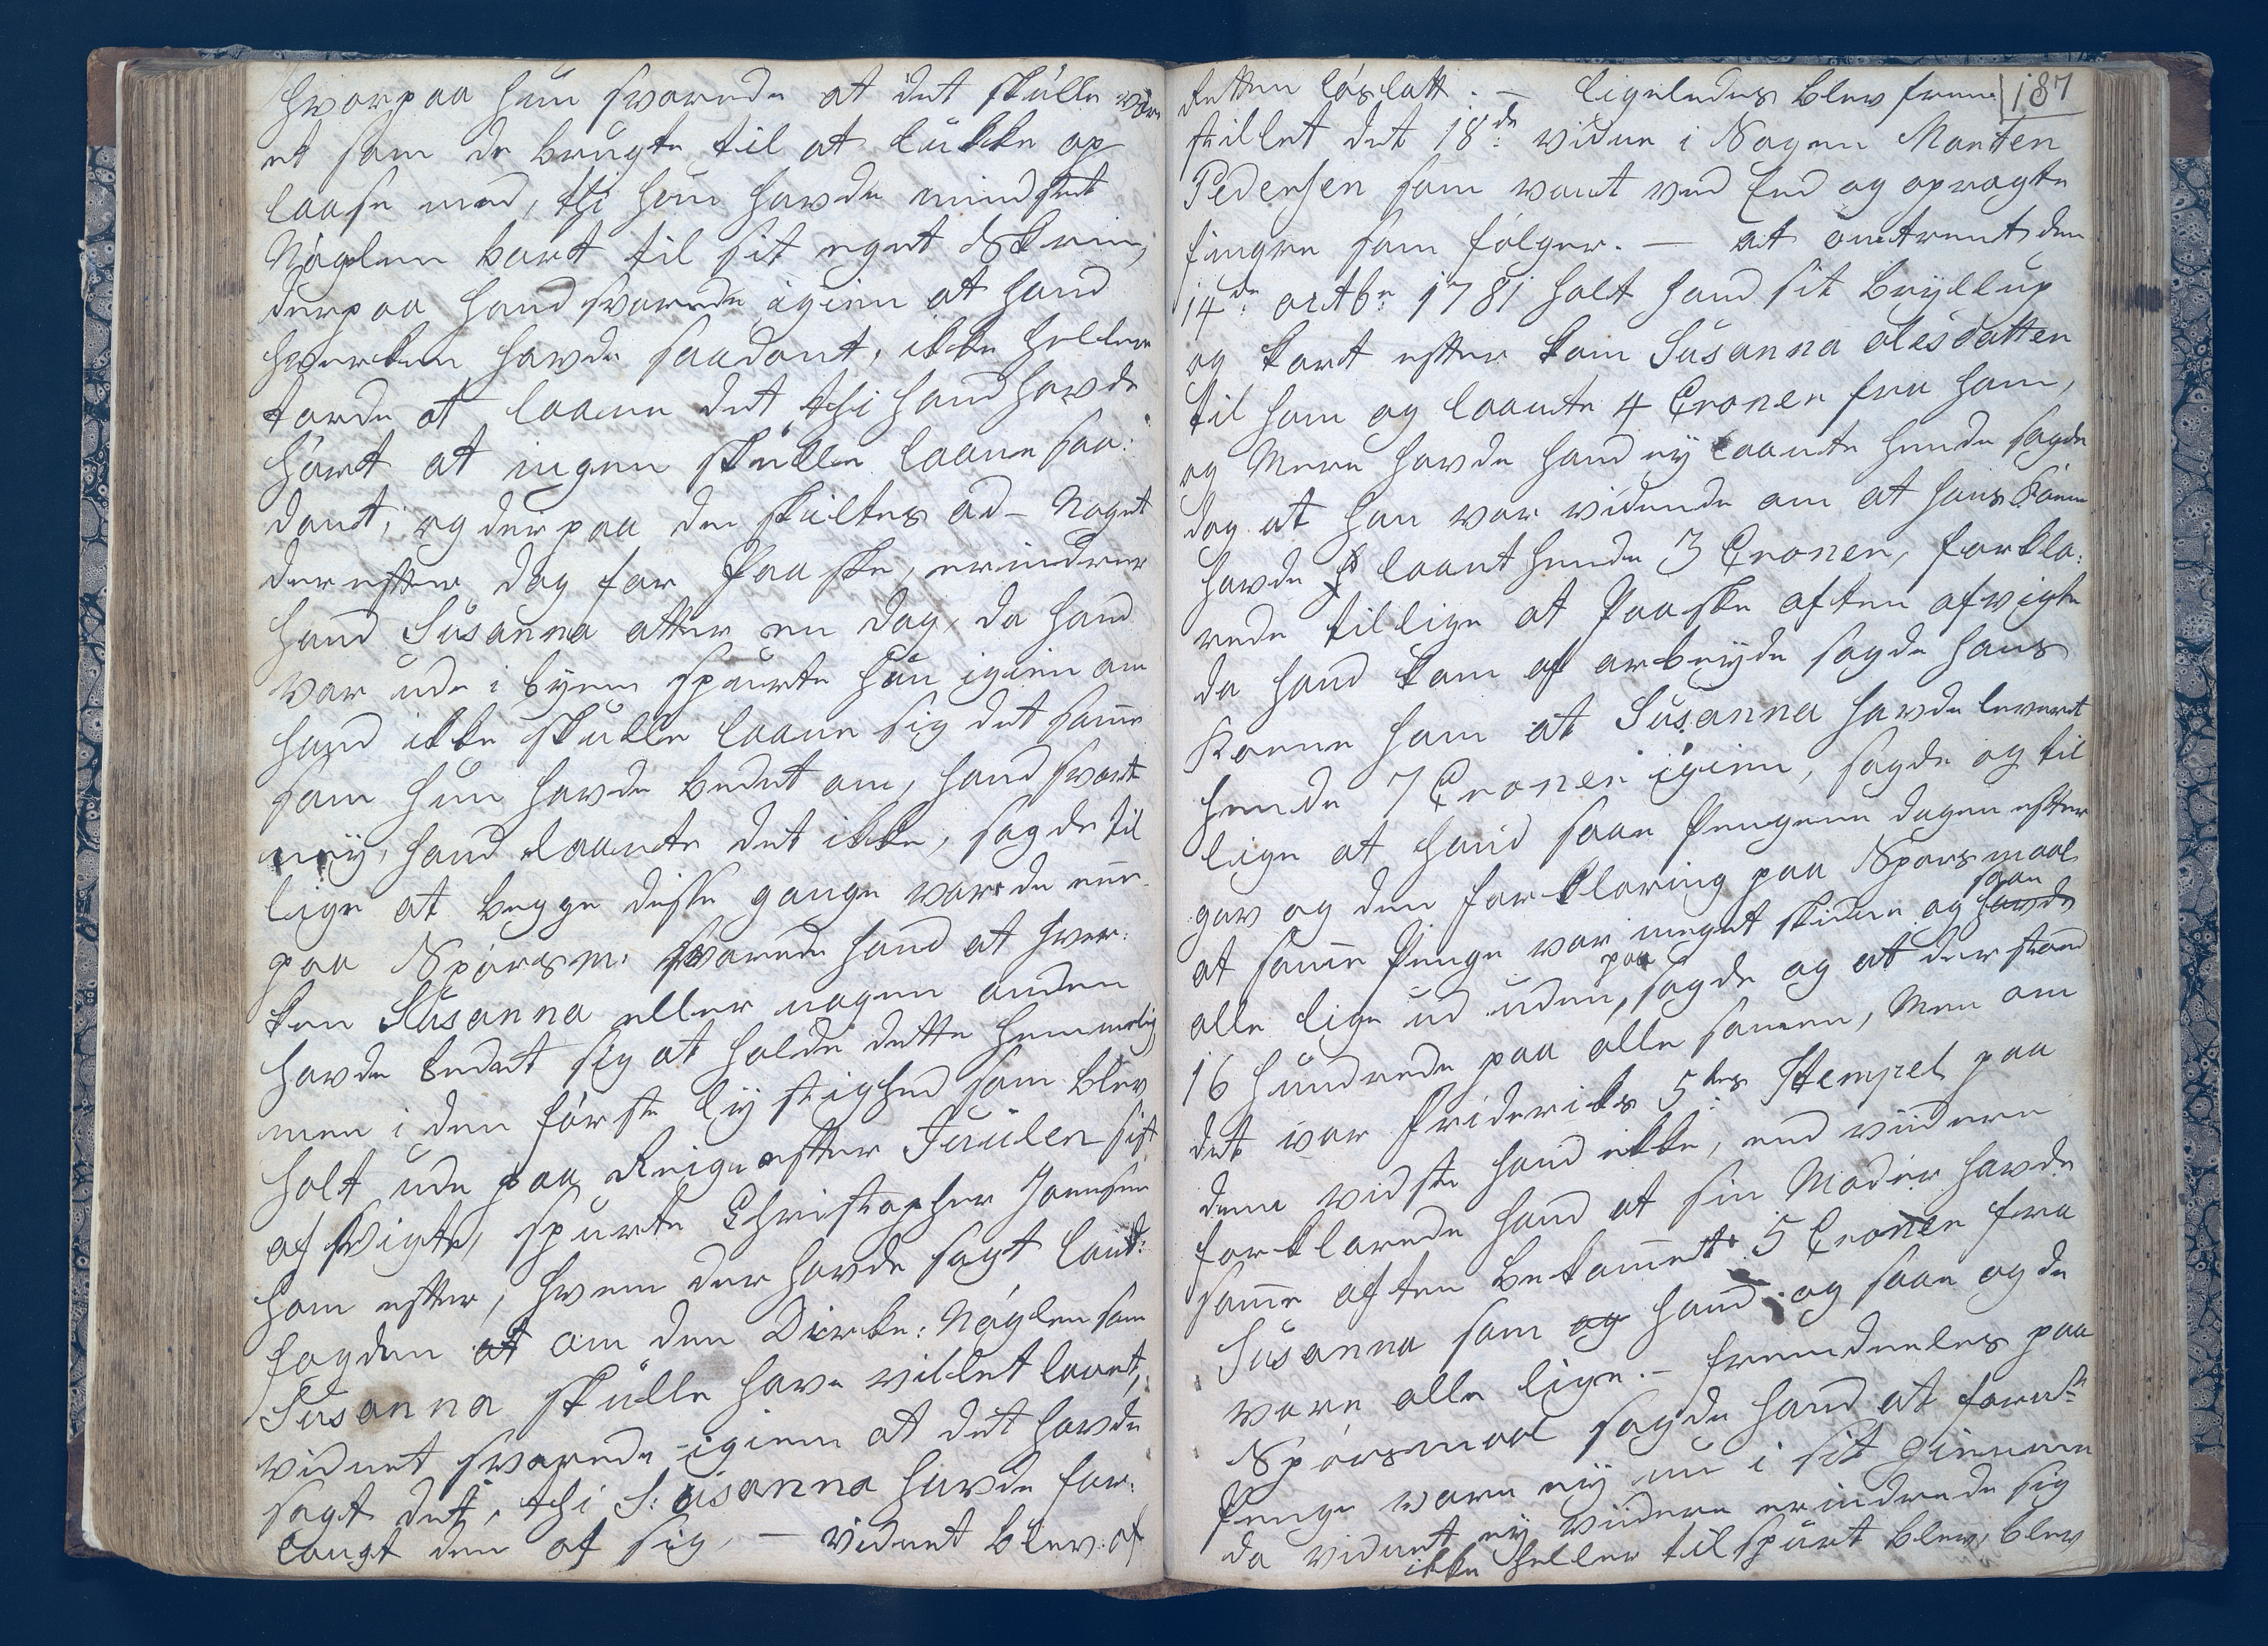 hvorpaa hun svarede at det skulle være
et som de brugte til at lukke op
laase med, thi hun havde mindstet
Nøglen bort til sit eget Skrin,
derpaa hand svarede igien at hand
hverken havde saadant, ikke heller
torde at laane det thi hand havde
hørt at ingen skulle laane saa:
dant; og derpaa de skiltes ad – Noget
der efter dog for Paaske, erindrer
hand Susanna atter en dag, da hand
var ude i byen spurte hun igien om
hand ikke skulle laane sig det samme
som hun havde bedet om, hand svart
neÿ, hand laante det ikke, sagde til
lige at begge disse gange var de ene
paa Spørsm: svarede hand at hver:
ken Susanna eller nogen anden
havde bedet sig at holde dette hemmelig
men i den første lÿstighed som blev
holt ude paa Reigu efter Juulen sist
afvigte, spurte Christopher Joensen
ham efter, hvem der havde sagt land:
fogden at om den Dirke: Nøglen som
Susanna skulle have villet laant,
vidnet svarede igien at det havde
sagt det, thi S: Susanna havde for:
langt den af sig, — vidnet blev af
187
Retten løslatt. — ligeledes blev frem
stillet det 18de vidne i Sagen Morten
Pedersen som vant ved Eed og opragte
fingre som følger. — at omtrent den
14de octbr 1781 holt hand sit Brÿllup
og kort efter kom Susanna Olesdatter
til ham og laante 4 Croner fra ham,
og Mere havde hand eÿ laante hende sagde
dog at han var vidende om at hans Kone
havde laant hende 3 Croner, forkla:
rede tillige at Paaske aften afvigte
da hand kom af arbeÿde sagde hans
Kone ham at Susanna havde leveret
hende 7 Croner igien, sagde og til
lige at hand saae Pengene dagen efter
gav og den forklaring paa Spørsmaal
at samme Penge var meget skidne og havde saae
alle lige ud uden paa, sagde og at der stod
16 hundrede paa alle samen, Men om
det var Friderichs 5tes Stempel paa
dem vidste hand ikke, end viidere
forklarede hand at sin Moder havde
samme aften bekommet 5 Croner fra
Susanna som og hand og saae og de
vare alle lige. — fremdeeles paa
Spørsmaal sagde hand at forn:te
Penge vare eÿ nu i sit giemme
da vidnet eÿ viidere erindrede sig
ikke heller tilspurt blev, blev